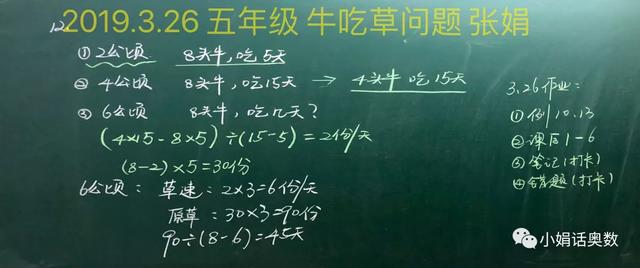 2019.3.26 五年级 牛吃草问题 张娟
12.
① 2公顷 8头牛,吃5天
② 4公顷 8头牛,吃15天 → 4头牛 吃15天
③ 6公顷 8头牛,吃几天?
(4×15-8×5)÷(15-5)=2份/天
(8-2)×5=30份
6公顷: 草速:2×3=6份/天
原草:30×3=90份
90÷(8-6)=45天
3.26作业:
① 例10.13
② 课后1-6
③ 笔记(打卡)
④ 错题(打卡)
小娟话奥数